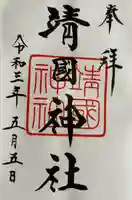 奉拝
靖國神社
靖國神社
令和三年五月五日